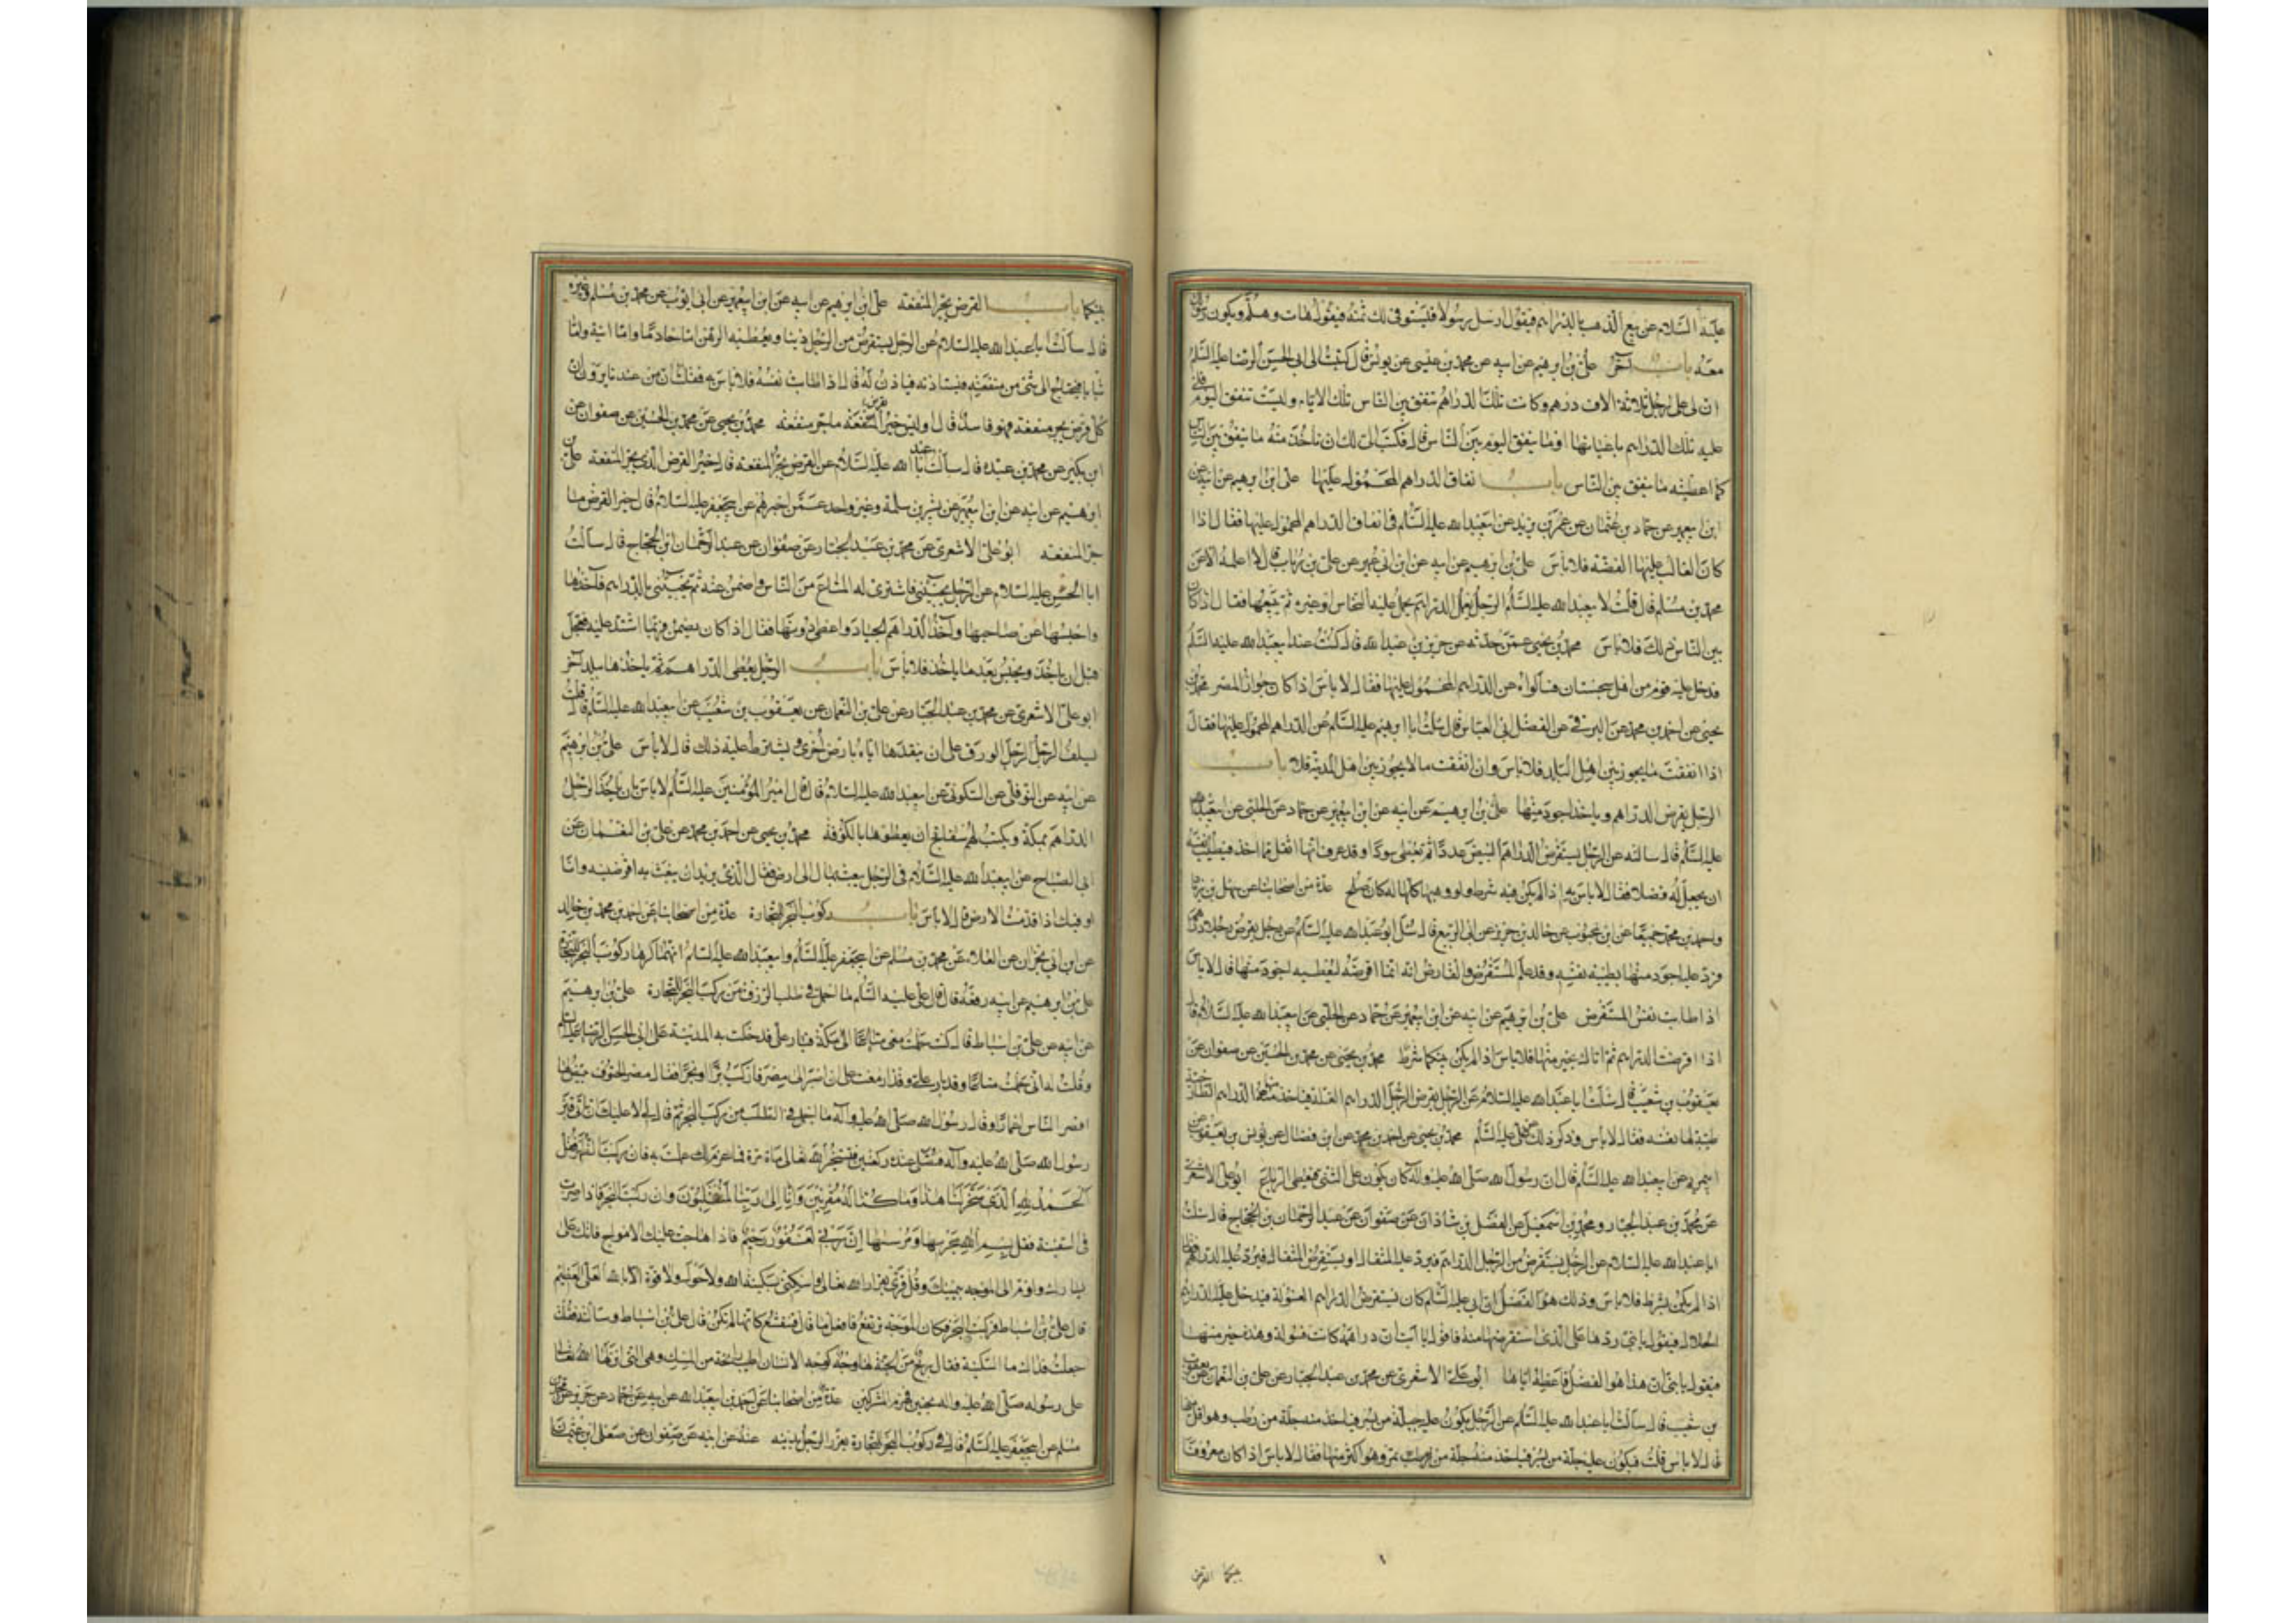 عليه السلام عن بيع الذهب بالدراهم فيقول ارسل رسولا فليستوفى لك ثمنه فيقول هات وهلم ويكون رسولك
معه باب آخر على بن ابرهيم عن ابيه عن محمد بن عيسى عن يونس قال كتبت الى ابى الحسن الرضا عليه السلم
ان لى على رجل ثلاثة الاف درهم وكانت تلك الدراهم تنفق بين الناس تلك الايام وليست تنفق اليوم فلى
عليه تلك الدراهم باعيانها او ما ينفق اليوم بين الناس قال فكتب الى لك ان تاخذ منه ما ينفق بين الناس
كما اعطيته ما ينفق بين الناس باب انفاق الدراهم المحمول عليها على بن ابرهيم عن ابيه عن
ابن ابيعمير عن حماد بن عثمان عن عمر بن يزيد عن ابيعبد الله عليه السلم فى انفاق الدراهم المحمول عليها فقال اذا
كان الغالب عليها الفضة فلا باس على بن ابرهيم عن ابيه عن ابن ابى عمير عن على بن رئاب قال لا اعلمه الا عن
محمد بن مسلم قال قلت لابيعبد الله عليه السلم الرجل يعمل الدراهم يحمل عليها النحاس او غيره ثم يبيعها فقال اذا كان
بين الناس ذلك فلا باس محمد بن يحيى عمن حدثه عن حريز بن عبد الله قال كنت عند ابيعبد الله عليه السلم
فدخل عليه قوم من اهل سجستان فسالوه عن الدراهم المحمول عليها فقال لا باس اذا كان جواز المصر محمد بن
يحيى عن احمد بن محمد عن البرقى عن الفضل ابى العباس قال سالت ابا ابرهيم عليه السلم عن الدراهم المحمول عليها فقال
اذا انفقت ما يجوز بين اهل البلد فلا باس وان انفقت ما لا يجوز بين اهل المدينة فلا باب
الرجل يقرض الدراهم وياخذ اجود منها على بن ابرهيم عن ابيه عن ابن ابيعمير عن حماد عن الحلبى عن ابيعبد الله
عليه السلم قال سالته عن الرجل يستقرض الدراهم البيض عددا ثم يعطى سودا وقد عرف انها اثقل مما اخذ فيطيب نفسه
ان يجعل له فضلا فقال لا باس به اذا لم يكن فيه شرط ولو وهبها كلها له كان صلح عدة من اصحابنا عن سهل بن زياد
واحمد بن محمد جميعا عن ابن محبوب عن خالد بن جرير عن ابى الربيع قال سئل ابو عبد الله عليه السلم عن رجل يقرض رجلا دراهم
فرد عليه اجود منها بطيبة نفسه وقد علم المستقرض والقارض انه انما اقرضه ليعطيه اجود منها قال لا باس
اذا طابت نفس المستقرض على بن ابرهيم عن ابيه عن ابن ابيعمير عن حماد عن الحلبى عن ابيعبد الله عليه السلام قال
اذا اقرضت الدراهم ثم اتاك بخير منها فلا باس اذا لم يكن بينكما شرط محمد بن يحيى عن محمد بن الحسين عن صفوان عن
يعقوب بن شعيب قال سالت ابا عبد الله عليه السلام عن الرجل يقرض الرجل الدراهم الغلة فياخذ منها الدراهم الطازجية
طيبة بها نفسه فقال لا باس وذكر ذلك عن على عليه السلم محمد بن يحيى عن احمد بن محمد عن ابن فضال عن يونس بن يعقوب عن
ابيمريم عن ابيعبد الله عليه السلم قال ان رسول الله صلى الله عليه وآله كان يكون عليه الثنى فيعطى الرباع ابو على الاشعرى
عن محمد بن عبد الجبار ومحمد بن اسمعيل عن الفضل بن شاذان عن صفوان عن عبد الرحمان بن الحجاج قال سالت
ابا عبد الله عليه السلام عن الرجل يستقرض من الرجل الدراهم فيرد عليه المثقال او يستقرض المثقال فيرد عليه الدراهم فقال
اذا لم يكن شرط فلا باس وذلك هو الفضل ان ابى عليه السلم كان يستقرض الدراهم الفسولة فيدخل عليه الدراهم
الجلال فيقول يا بنى ردها على الذى استقرضتها منه فاقول يا ابت ان دراهمه كانت فسولة وهذه خير منها
فيقول يا بنى ان هذا هو الفضل فاعطه اياها ابو على الاشعرى عن محمد بن عبد الجبار عن على بن النعمان عن يعقوب
بن شعيب قال سالت ابا عبد الله عليه السلم عن الرجل يكون عليه جلة من بسر فياخذ منه جلة من رطب وهو اقل منها
قال لا باس قلت فيكون عليه جلة من بسر فياخذ منه جلة من تمر وهو اكثر منها فقال لا باس اذا كان معروفا
بينكما القرض
بينكما باب القرض يجر المنفعة على بن ابرهيم عن ابيه عن ابن ابيعمير عن ابى ايوب عن محمد بن مسلم وغيره
قال سالت ابا عبد الله عليه السلام عن الرجل يستقرض من الرجل دينا ويعطيه الرهن اما خادما واما انية واما
ثيابا فيحتاج الى شئ من منفعته فيستاذنه فياذن له قال اذا طابت نفسه فلا باس به فقلت ان من عندنا يروون ان
كل قرض يجر منفعة فهو فاسد قال اوليس خير القرض ما جر منفعة محمد بن يحيى عن محمد بن الحسين عن صفوان عن
ابن بكير عن محمد بن عبده قال سالت ابا عبد الله عليه السلام عن القرض يجر المنفعة قال خير القرض الذى يجر المنفعة على بن
ابرهيم عن ابيه عن ابن ابيعمير عن بشر بن سلمة وغير واحد عمن اخبرهم عن ابيجعفر عليه السلام قال خير القرض ما
جر المنفعة ابو على الاشعرى عن محمد بن عبد الجبار عن صفوان عن عبد الرحمان ابن الحجاج قال سالت
ابا الحسن عليه السلام عن الرجل يجيئنى فاشترى له المتاع من الناس واضمن عنه ثم يجيئنى بالدراهم فآخذها
واحبسها عن صاحبها وآخذ الدراهم الجياد واعطى دونها فقال اذا كان يضمن فربما اشتد عليه فعجل
قبل ان ياخذ ويحبس بعد ما ياخذ فلا باس باب الرجل يعطى الدراهم ثم ياخذها ببلد آخر
ابو على الاشعرى عن محمد بن عبد الجبار عن على بن النعمان عن يعقوب بن شعيب عن ابيعبد الله عليه السلم قال قلت
يسلف الرجل الرجل الورق على ان ينقدها اياه بارض اخرى ويشترط عليه ذلك قال لا باس على بن ابرهيم
عن ابيه عن النوفلى عن السكونى عن ابيعبد الله عليه السلام قال قال امير المؤمنين عليه السلم لا باس بان ياخذ الرجل
الدراهم بمكة ويكتب لهم سفاتج ان يعطوها بالكوفة محمد بن يحيى عن احمد بن محمد عن على بن النعمان عن
ابى الصباح عن ابيعبد الله عليه السلام فى الرجل يبعث بمال الى ارض فقال الذى يريد ان يبعث به اقرضنيه وانا
اوفيك اذا قدمت الارض قال لا باس باب ركوب البحر للتجارة عدة من اصحابنا عن احمد بن محمد بن خالد
عن ابن ابى نجران عن العلاء عن محمد بن مسلم عن ابيجعفر عليه السلم وابيعبد الله عليه السلم انهما كرها ركوب البحر للتجارة
على بن ابرهيم عن ابيه رفعه قال قال على عليه السلم ما اجمل فى طلب الرزق من ركب البحر للتجارة على بن ابرهيم
عن ابيه عن على بن اسباط قال كنت حملت معى متاعا الى مكة فبار على فدخلت به المدينة على ابى الحسن الرضا عليه السلم
وقلت له انى حملت متاعا وقد بار على وقد ازمعت على ان اسير الى مصر فاركب برا او بحرا فقال مصر الحتوف يقيض لها
اقصر الناس اعمارا وقال رسول الله صلى الله عليه وآله ما اجمل فى الطلب من ركب البحر ثم قال لى لا عليك ان تاتى قبر
رسول الله صلى الله عليه وآله فتصلى عنده ركعتين فتستخير الله تعالى مائة مرة فما عزم لك عملت به فان ركبت الظهر فقل
الحمد لله الذى سخر لنا هذا وما كنا له مقرنين وانا الى ربنا لمنقلبون وان ركبت البحر فاذا صرت
فى السفينة فقل بسم الله مجريها ومرسيها ان ربى لغفور رحيم فاذا هاجت عليك الامواج فاتك على
يسارك واوم الى الموجه بيمينك وقل قرى بقرار الله تعالى واسكنى بسكينة الله ولا حول ولا قوة الا بالله العلى العظيم
قال على بن اسباط فركبت البحر فكان الموجة ترتفع فاقول ما قال فتنقشع كانها لم تكن قال على بن اسباط وسالته فقلت
جعلت فداك ما السكينة فقال ريح من الجنة لها وجه كوجه الانسان اطيب رائحة من المسك وهى التى انزلها الله تعالى
على رسوله صلى الله عليه واله بحنين فهزم المشركين عدة من اصحابنا عن احمد بن ابيعبد الله عن ابيه عن حماد عن حريز عن محمد بن
مسلم عن ابيجعفر عليه السلم قال فى ركوب البحر للتجارة يغرر الرجل بدينه عنه عن ابيه عن صفوان عن معلى ابى عثمان